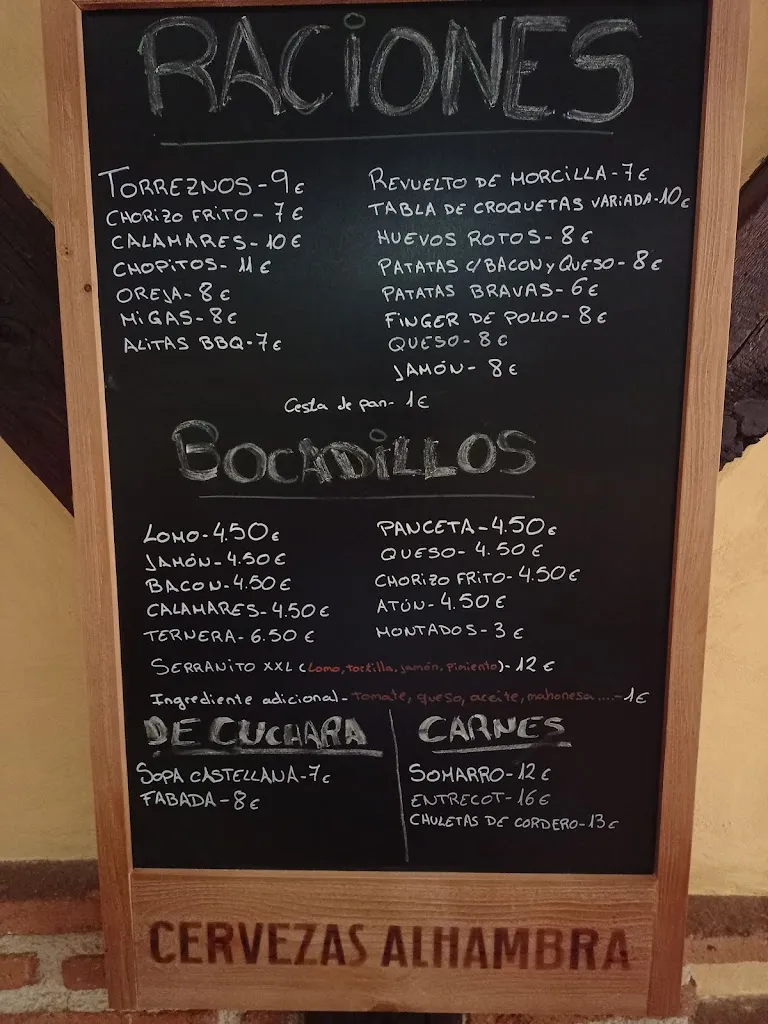 RACIONES
TORREZNOS - 9€
CHORIZO FRITO - 7€
CALAMARES - 10€
CHOPITOS - 11€
OREJA - 8€
MIGAS - 8€
ALITAS BBQ - 7€
REVUELTO DE MORCILLA - 7€
TABLA DE CROQUETAS VARIADA - 10€
HUEVOS ROTOS - 8€
PATATAS C/BACON Y QUESO - 8€
PATATAS BRAVAS - 6€
FINGER DE POLLO - 8€
QUESO - 8€
JAMÓN - 8€
Cesta de pan - 1€
BOCADILLOS
LOMO - 4.50€
JAMÓN - 4.50€
BACON - 4.50€
CALAMARES - 4.50€
TERNERA - 6.50€
PANCETA - 4.50€
QUESO - 4.50€
CHORIZO FRITO - 4.50€
ATÚN - 4.50€
MONTADOS - 3€
SERRANITO XXL (Lomo, tortilla, jamón, pimiento) - 12€
Ingrediente adicional - tomate, queso, aceite, mahonesa .... - 1€
DE CUCHARA
SOPA CASTELLANA - 7€
FABADA - 8€
CARNES
SOMARRO - 12€
ENTRECOT - 16€
CHULETAS DE CORDERO - 13€
CERVEZAS ALHAMBRA